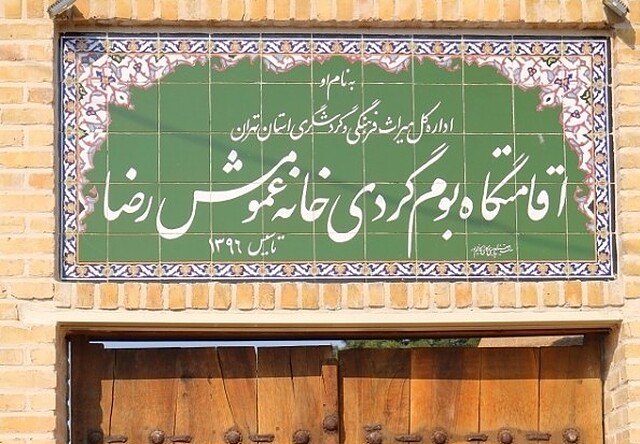 به نام او
اداره کل میراث فرهنگی و گردشگری استان تهران
اقامتگاه بوم گردی خانه عمو مش رضا
تاسیس ۱۳۹۶